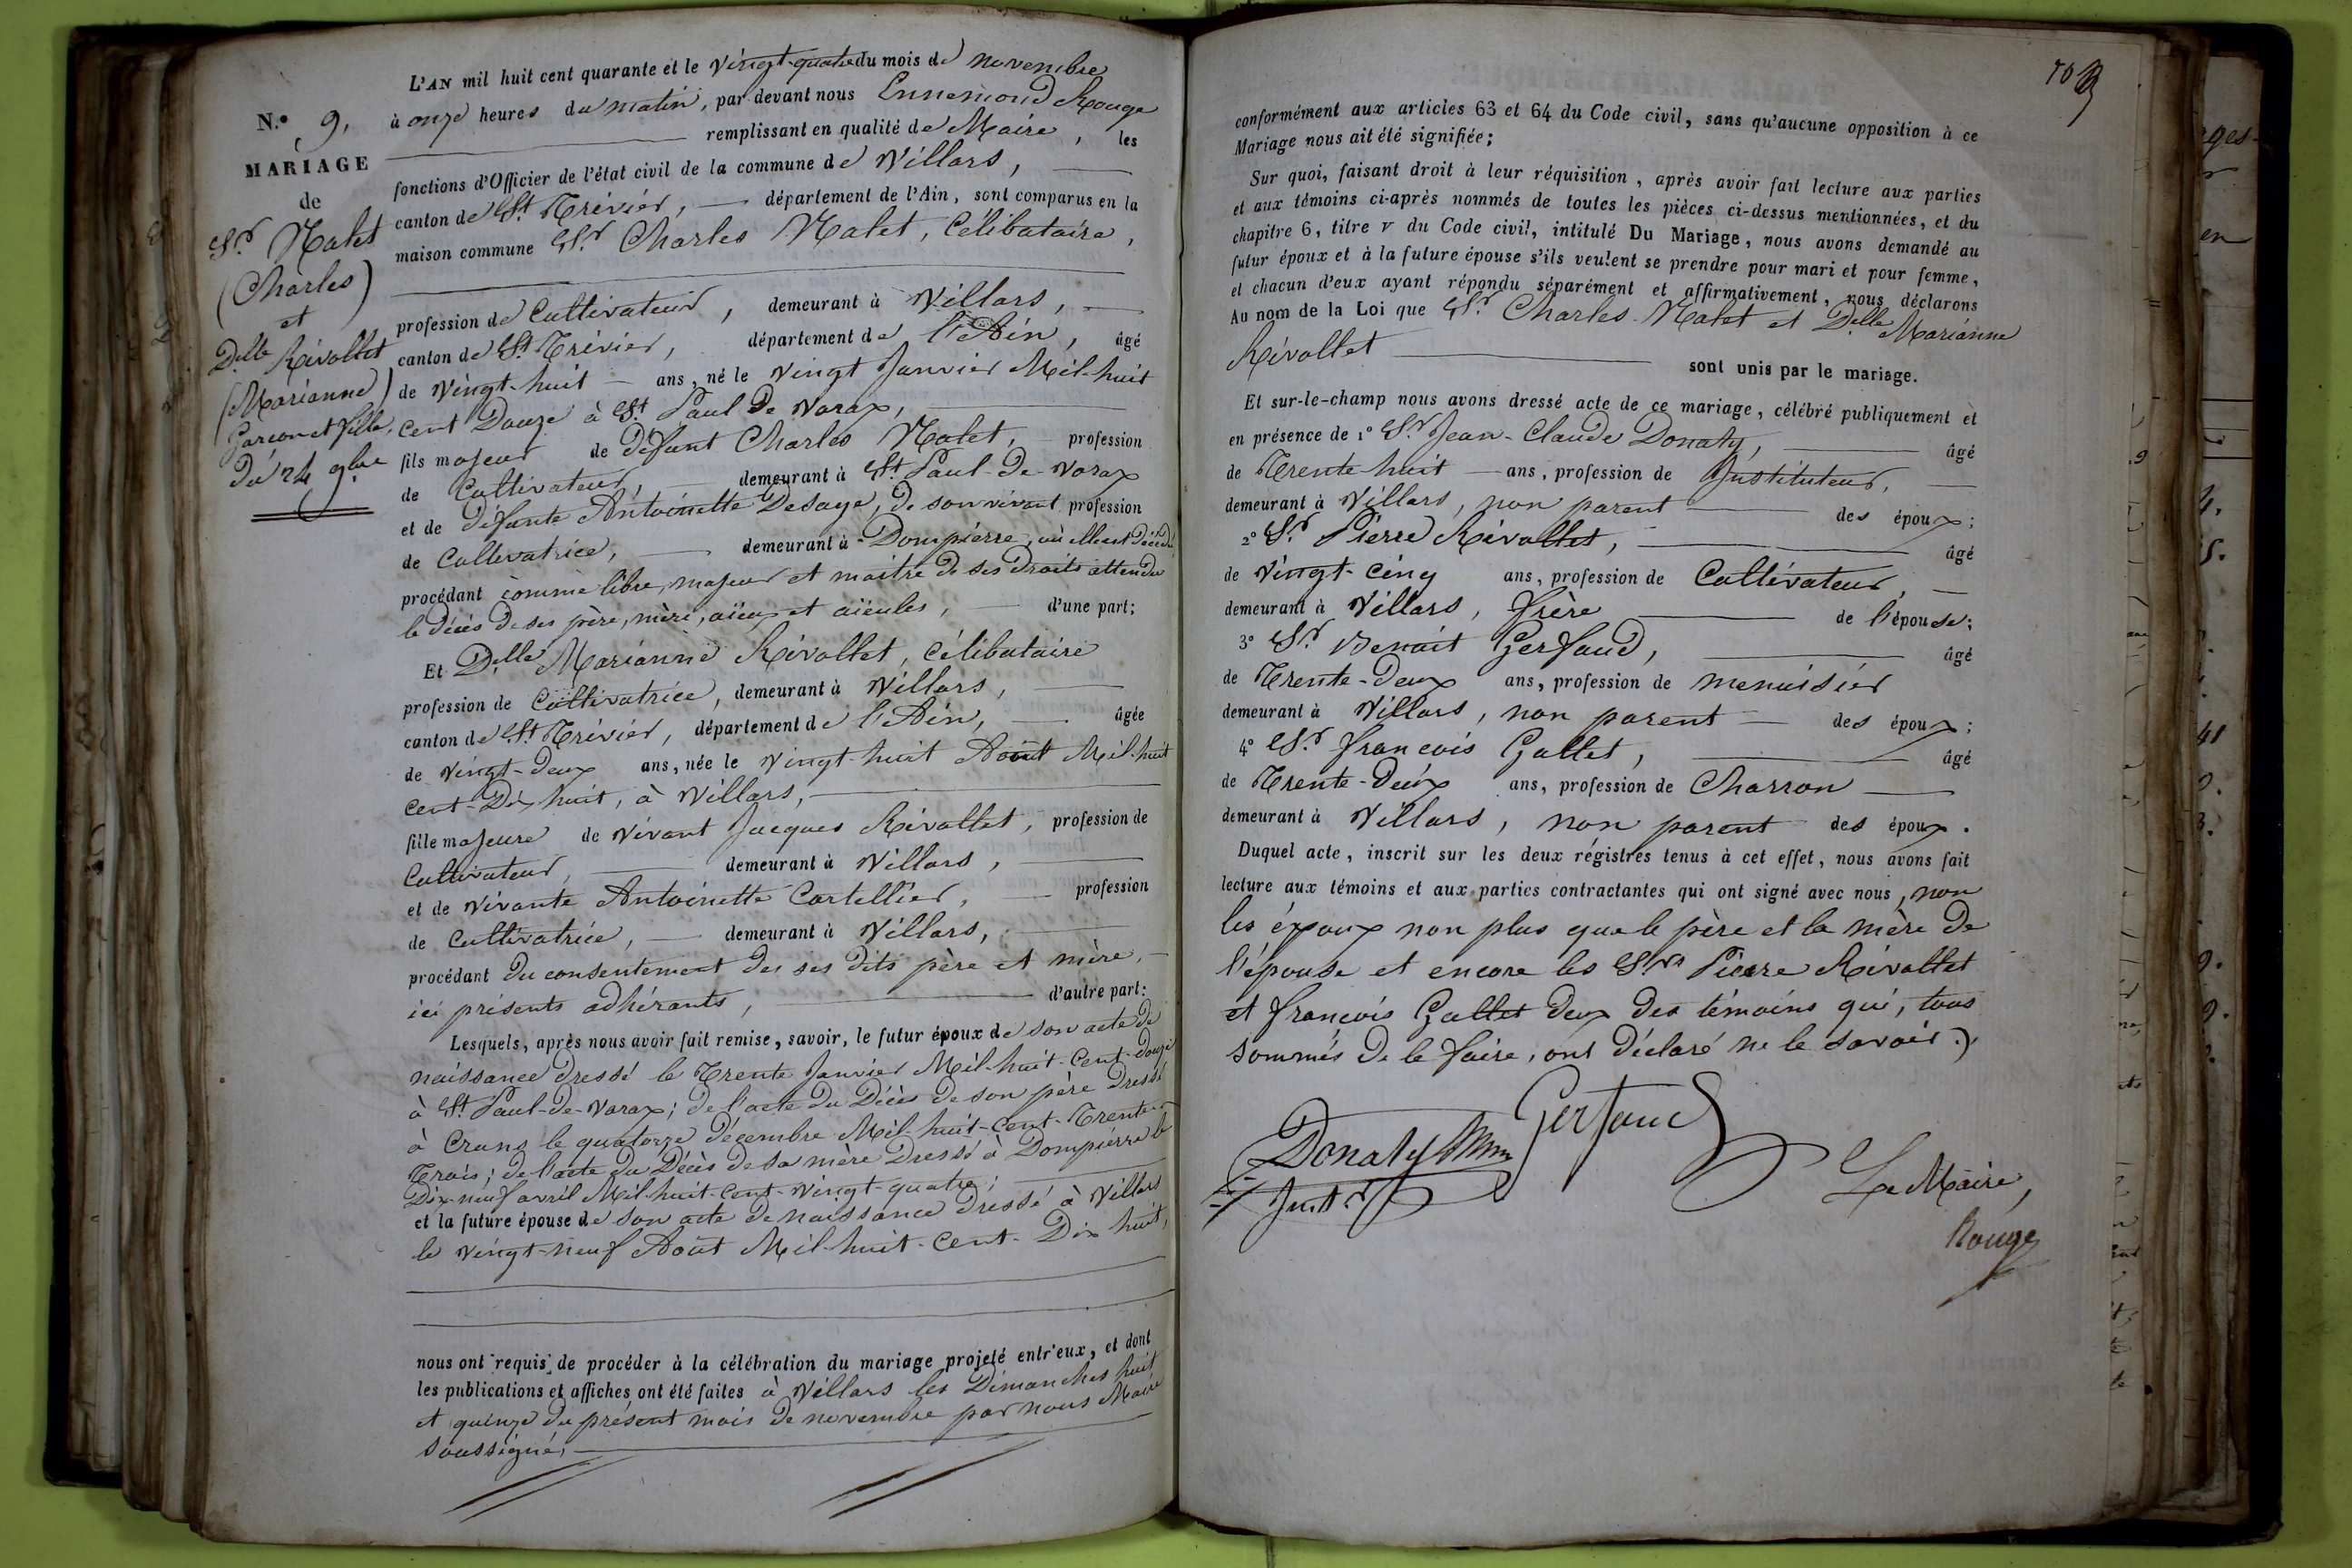 N.º 9.
MARIAGE
de
Sr. Malet
(Charles)
et
Delle Rivollet
(Marianne)
Garçon et fille.
Du 24 9bre
L'AN mil huit cent quarante et le vingt-quatre du mois de novembre
à onze heures du matin, par devant nous Ennemond Rouge
remplissant en qualité de Maire, les
fonctions d'Officier de l'état civil de la commune de Villars,
canton de St. Trivier, département de l'Ain, sont comparus en la
maison commune Sr. Charles Malet, Célibataire,
profession de Cultivateur, demeurant à Villars,
canton de St. Trivier, département de l'Ain, âgé
de vingt-huit ans, né le vingt Janvier Mil-huit
cent Douze à St. Paul de Varax,
fils majeur de défunt Charles Malet, profession
de Cultivateur, demeurant à St. Paul-de-Varax
et de défunte Antoinette Desaye, de son vivant profession
de Cultivatrice, demeurant à Dompierre, où elle est décédée
procédant comme libre, majeur et maître de ses droits attendu
le décès de ses père, mère, aïeux et aïeules, d'une part;
Et Delle Marianne Rivollet, Célibataire
profession de Cultivatrice, demeurant à Villars,
canton de St. Trivier, département de l'Ain, âgée
de vingt-deux ans, née le vingt-huit Août Mil-huit
cent-Dix huit, à Villars,
fille majeure de vivant Jacques Rivollet, profession de
Cultivateur, demeurant à Villars,
et de vivante Antoinette Cartellier, profession
de Cultivatrice, demeurant à Villars,
procédant du consentement des ses dits père et mère,
ici présents adhérants, d'autre part:
Lesquels, après nous avoir fait remise, savoir, le futur époux de son acte de
naissance dressé le Trente Janvier Mil-huit-Cent-douze
à St. Paul-de-Varax; de l'acte du Décès de son père dressé
à Crans le quatorze décembre Mil-huit-Cent-Trente-
Trois; de l'acte du Décès de sa mère Dressé à Dompierre le
Dix-neuf avril Mil-huit-Cent-vingt-quatre;
et la future épouse de son acte de naissance dressé à Villars
le vingt-neuf Août Mil-huit-Cent-Dix huit,
nous ont requis de procéder à la célébration du mariage projeté entr'eux, et dont
les publications et affiches ont été faites à Villars les Dimanches huit
et quinze du présent mois de novembre par nous Maire
soussigné,
103
conformément aux articles 63 et 64 du Code civil, sans qu'aucune opposition à ce
Mariage nous ait été signifiée;
Sur quoi, faisant droit à leur réquisition, après avoir fait lecture aux parties
et aux témoins ci-après nommés de toutes les pièces ci-dessus mentionnées, et du
chapitre 6, titre V du Code civil, intitulé Du Mariage, nous avons demandé au
futur époux et à la future épouse s'ils veulent se prendre pour mari et pour femme,
et chacun d'eux ayant répondu séparément et affirmativement, nous déclarons
Au nom de la Loi que Sr. Charles Malet et Delle Marianne
Rivollet sont unis par le mariage.
Et sur-le-champ nous avons dressé acte de ce mariage, célébré publiquement et
en présence de 1º Sr. Jean-Claude Donaty, âgé
de Trente huit ans, profession de Instituteur,
demeurant à Villars, non parent des époux;
2º Sr. Pierre Rivollet, âgé
de vingt-cinq ans, profession de Cultivateur,
demeurant à Villars, frère de l'épouse;
3º Sr. Benoit Gerfaud, âgé
de Trente-Deux ans, profession de menuisier
demeurant à Villars, non parent des époux;
4º Sr. françois Gallet, âgé
de Trente-Deux ans, profession de Charron
demeurant à Villars, non parent des époux.
Duquel acte, inscrit sur les deux régistres tenus à cet effet, nous avons fait
lecture aux témoins et aux parties contractantes qui ont signé avec nous, non
les époux non plus que le père et la mère de
l'épouse et encore les Srs Pierre Rivollet
et françois Gallet deux des témoins qui, tous
sommés de le faire, ont déclaré ne le savoir.
Gerfaud
Donaty
Instr
Le Maire,
Rouge